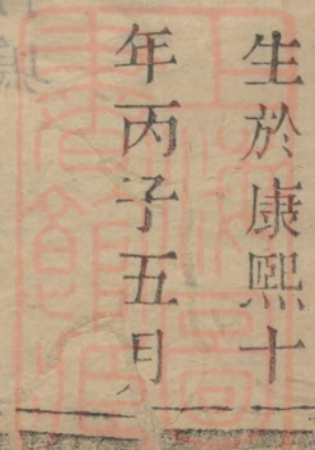 生於康熙十
年丙子五月